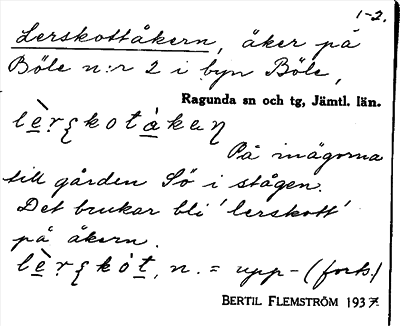 1-2.
Lerskottåkern, åker på
Böle n:r 2 i byn Böle,
Ragunda sn och tg, Jämtl. län.
På inägorna
till gården Sö i stågen.
Det brukar bli 'lerskott'
på åkern.
n. = upp- (forts.)
BERTIL FLEMSTRÖM 1937.